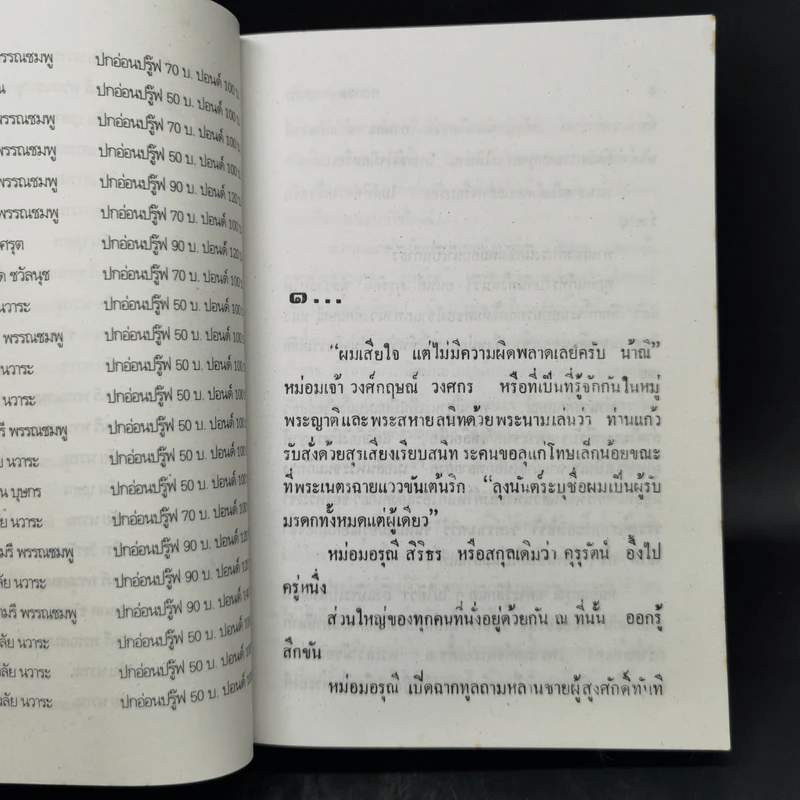 พรรณชมพู ปกอ่อนปรู๊ฟ 70 บ. ปอนด์ 100 บ.
ปกอ่อนปรู๊ฟ 50 บ. ปอนด์ 100
พรรณชมพู ปกอ่อนปรู๊ฟ 70 บ. ปอนด์ 100
พรรณชมพู ปกอ่อนปรู๊ฟ 50 บ. ปอนด์ 100
พรรณชมพู ปกอ่อนปรู๊ฟ 90 บ. ปอนด์ 120
พรรณชมพู ปกอ่อนปรู๊ฟ 70 บ. ปอนด์ 100
ศรุต ปกอ่อนปรู๊ฟ 90 บ. ปอนด์ 120
ชวัลนุช ปกอ่อนปรู๊ฟ 70 บ. ปอนด์ 100
นวาระ ปกอ่อนปรู๊ฟ 50 บ. ปอนด์ 100
พรรณชมพู ปกอ่อนปรู๊ฟ 50 บ. ปอนด์ 100
นวาระ ปกอ่อนปรู๊ฟ 50 บ. ปอนด์ 100
นวาระ ปกอ่อนปรู๊ฟ 50 บ. ปอนด์ 100
รี พรรณชมพู ปกอ่อนปรู๊ฟ 50 บ. ปอนด์ 100
ย นวาระ ปกอ่อนปรู๊ฟ 50 บ. ปอนด์ 100
น บุษกร ปกอ่อนปรู๊ฟ 50 บ. ปอนด์ 100
ย นวาระ ปกอ่อนปรู๊ฟ 70 บ. ปอนด์ 100
มรี พรรณชมพู ปกอ่อนปรู๊ฟ 90 บ. ปอนด์ 120
ลัย นวาระ ปกอ่อนปรู๊ฟ 90 บ. ปอนด์ 120
ามรี พรรณชมพู ปกอ่อนปรู๊ฟ 90 บ. ปอนด์ 140
ลัย นวาระ ปกอ่อนปรู๊ฟ 50 บ. ปอนด์ 100
วลัย นวาระ ปกอ่อนปรู๊ฟ 50 บ. ปอนด์ 100
วลัย นวาระ ปกอ่อนปรู๊ฟ 50 บ. ปอนด์ 100
๑...
“ผมเสียใจ แต่ไม่มีความผิดพลาดเลยครับ น้าณี”
หม่อมเจ้า วงศ์กฤษณ์ วงศกร หรือที่เป็นที่รู้จักกันในหมู่
พระญาติและพระสหายสนิทด้วยพระนามเล่นว่า ท่านแก้ว
รับสั่งด้วยสุรเสียงเรียบสนิท ระคนขอลุแก่โทษเล็กน้อยขณะ
ที่พระเนตรฉายแววขันเต้นริก “ลุงนันต์ระบุชื่อผมเป็นผู้รับ
มรดกทั้งหมดแต่ผู้เดียว”
หม่อมอรุณี สิริธร หรือสกุลเดิมว่า คุรุรัตน์ อึ้งไป
ครู่หนึ่ง
ส่วนใหญ่ของทุกคนที่นั่งอยู่ด้วยกัน ณ ที่นั้น ออกรู้
สึกขัน
หม่อมอรุณี เปิดฉากทูลถามหลานชายผู้สูงศักดิ์ทันที